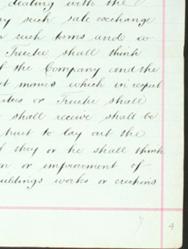 dealing with the
such sale exchange
such terms and so
Trustee shall think
of the Company and the
monies which in respect
or Trustee shall
shall receive shall be
trust to lay out the
they or he shall think
or improvement of
buildings works or erections
4